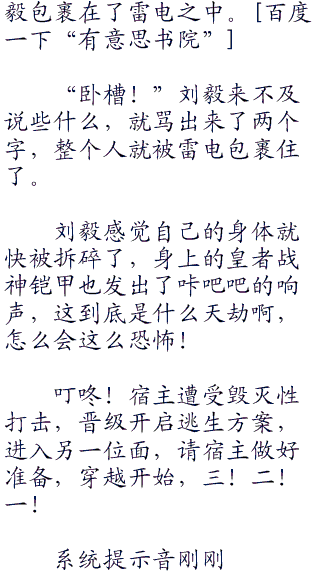 毅包裹在了雷电之中。[百度
一下“有意思书院”]
“卧槽！”刘毅来不及
说些什么，就骂出来了两个
字，整个人就被雷电包裹住
了。
刘毅感觉自己的身体就
快被拆碎了，身上的皇者战
神铠甲也发出了咔吧吧的响
声，这到底是什么天劫啊，
怎么会这么恐怖！
叮咚！宿主遭受毁灭性
打击，晋级开启逃生方案，
进入另一位面，请宿主做好
准备，穿越开始，三！二！
一！
系统提示音刚刚